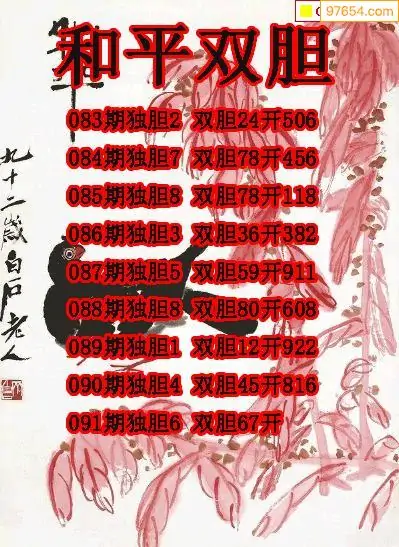 97654.com
和平双胆
083期独胆2 双胆24开506
084期独胆7 双胆78开456
085期独胆8 双胆78开118
086期独胆3 双胆36开382
087期独胆5 双胆59开911
088期独胆8 双胆80开608
089期独胆1 双胆12开922
090期独胆4 双胆45开816
091期独胆6 双胆67开
九十二歲白石老人